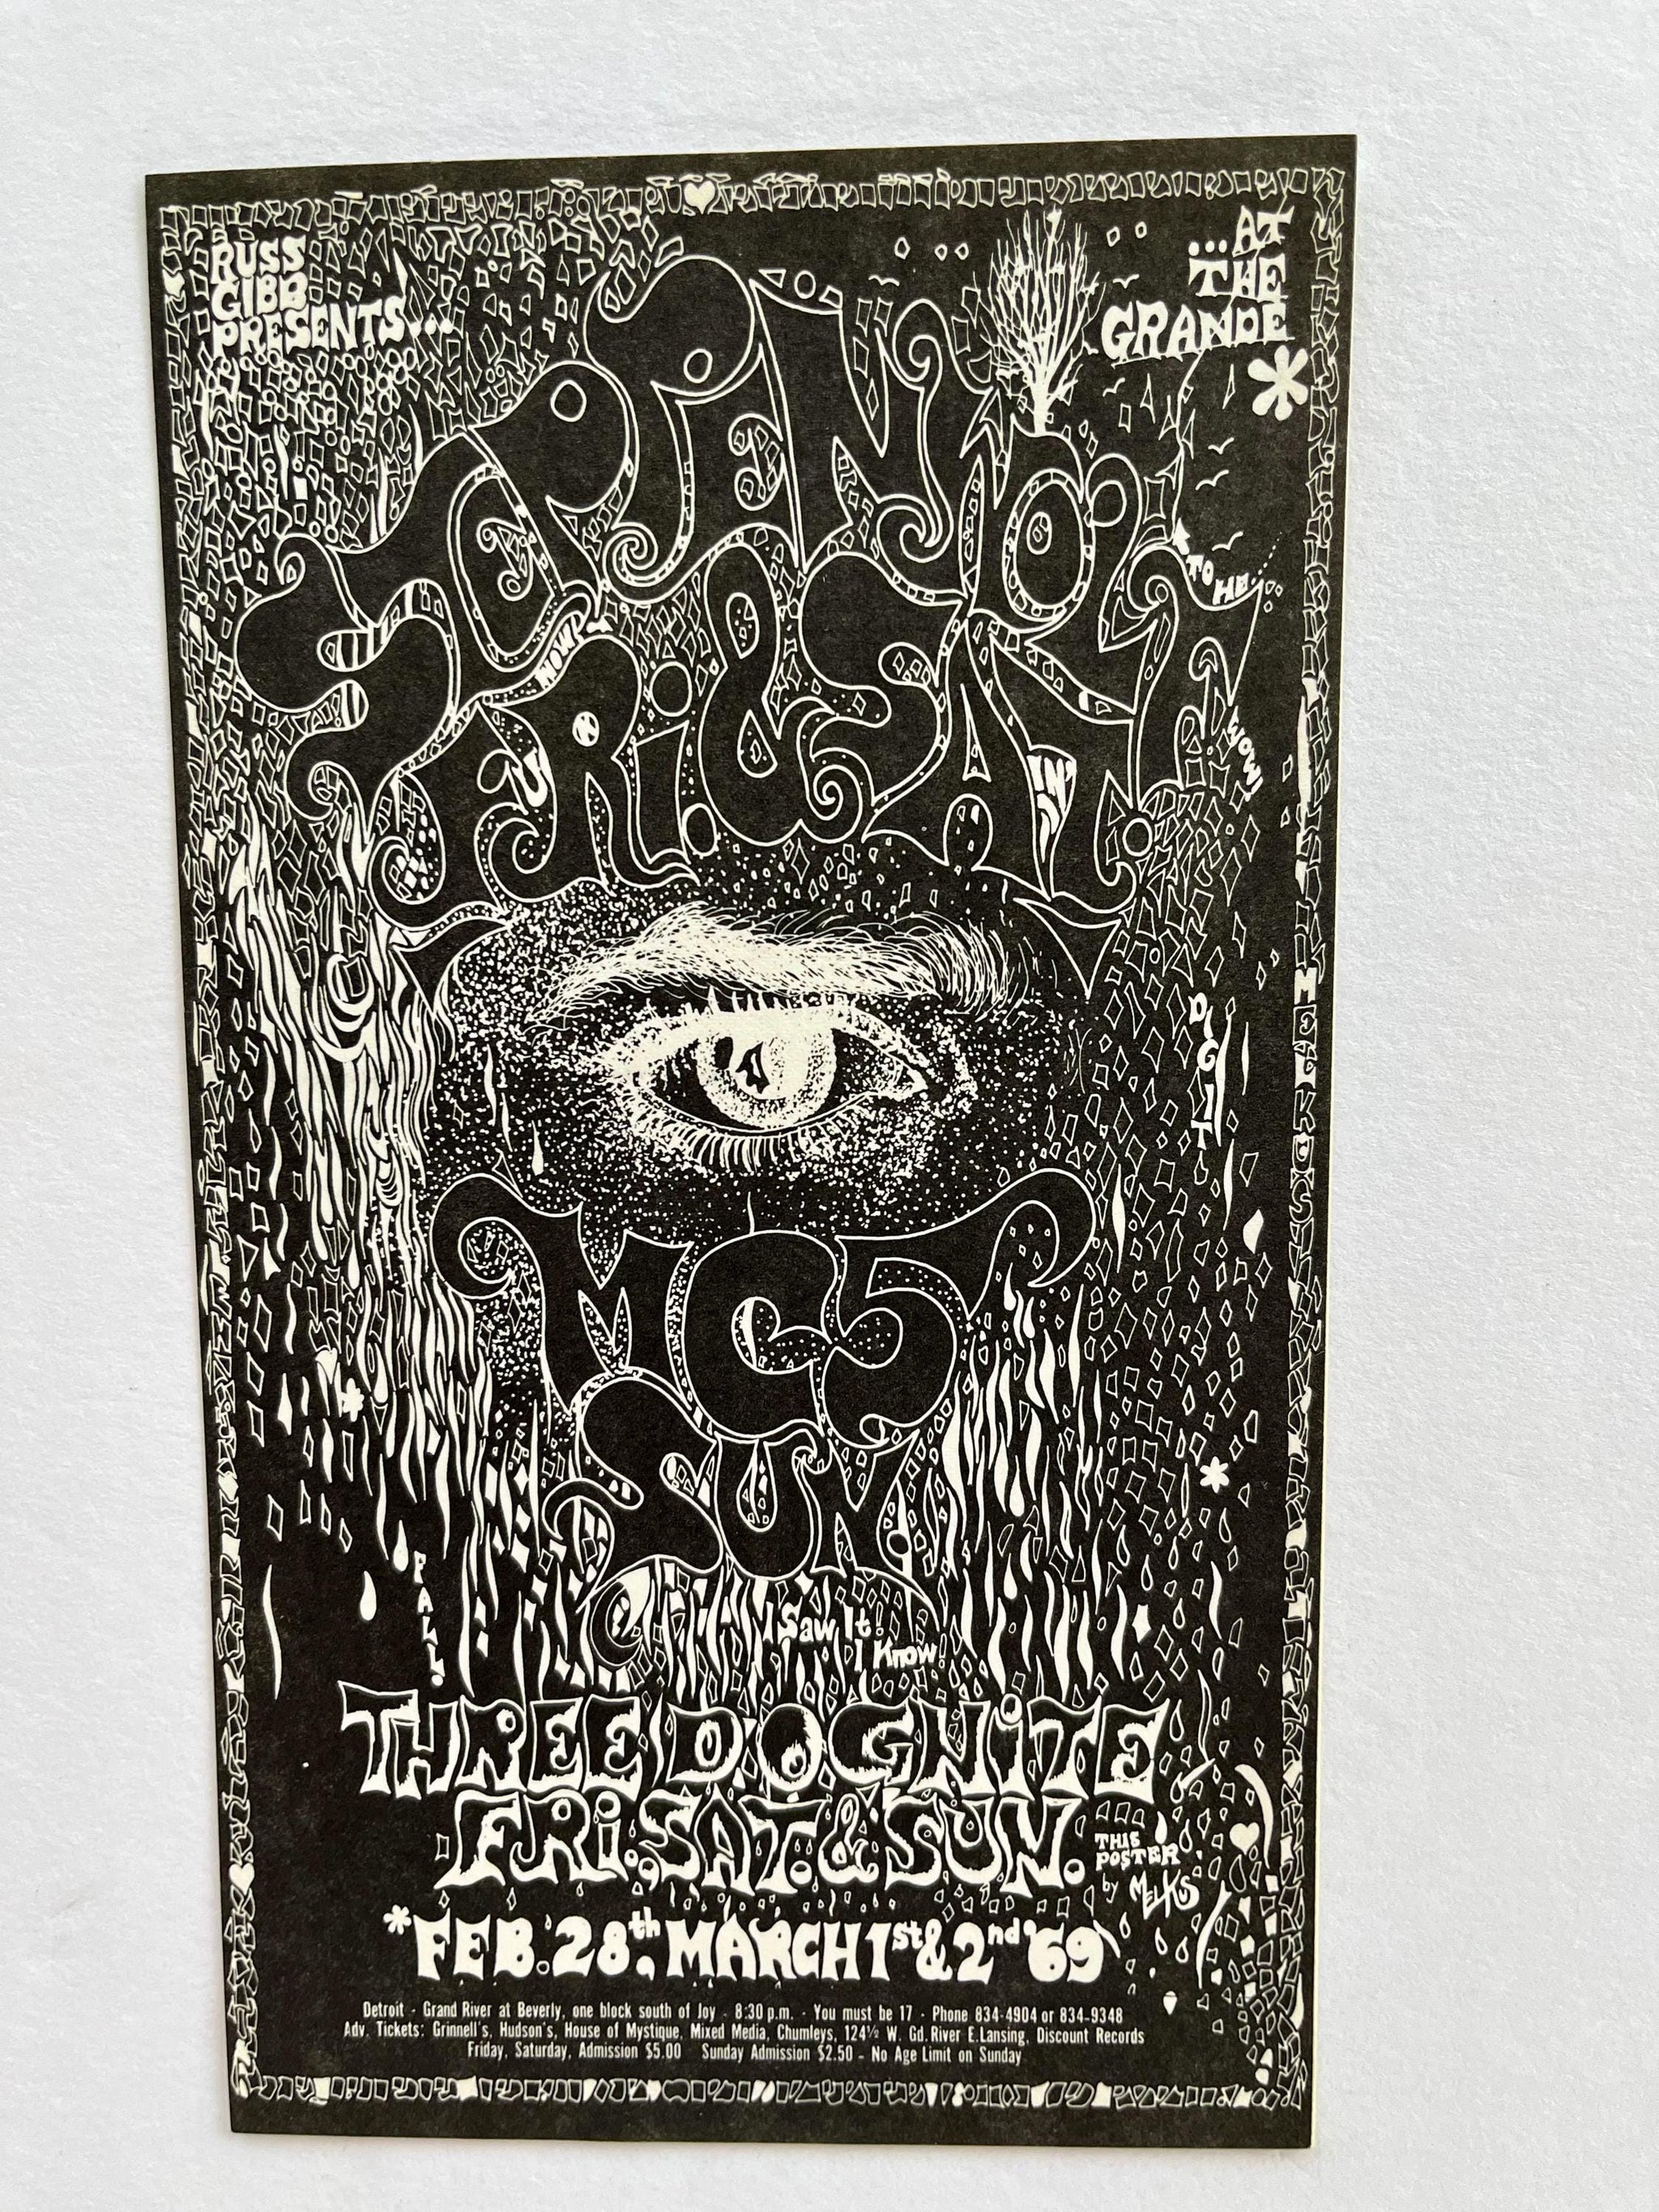 RUSS
GIBB
PRESENTS...
...AT
THE
GRANDE
*
STEPPENWOLF
TO ME
WOW!
FRI. & SAT.
WOW!
DIG IT
MC5
SUN
I Saw It!
I Know!
FALLS
THREE DOG NITE
FRI. SAT. & SUN.
THIS
POSTER
by MELKUS
*FEB. 28th, MARCH 1st & 2nd '69
Detroit - Grand River at Beverly, one block south of Joy - 8:30 p.m. - You must be 17 - Phone 834-4904 or 834-9348
Adv. Tickets: Grinnell's, Hudson's, House of Mystique, Mixed Media, Chumleys, 124½ W. Gd. River E. Lansing, Discount Records
Friday, Saturday, Admission $5.00 Sunday Admission $2.50 - No Age Limit on Sunday